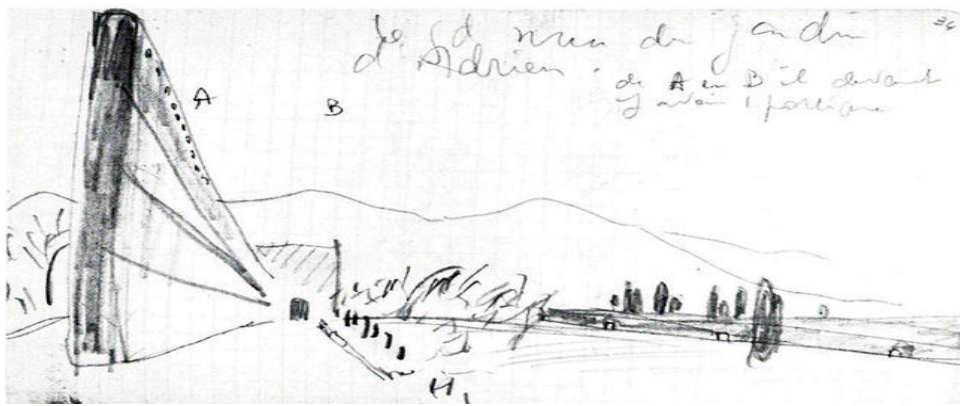 le gd mur du jardin
d'Adrien.
de A en B il devait
y avoir 1 portique
A
B